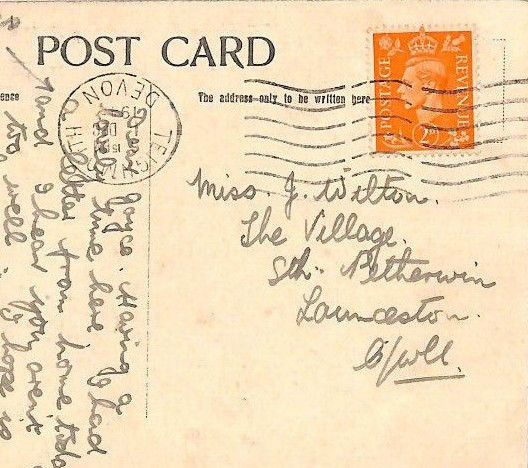 POST CARD
ence
The address only to be written here
TEIGNMOUTH
DEVON
POSTAGE
REVENUE
2D
Miss. J. Wilton.
The Village.
Sth. Petherwin
Launceston.
C/wll.
Dear Joyce. Having a
time here. I had
letter from home today
and I hear you arent
too well. I hope